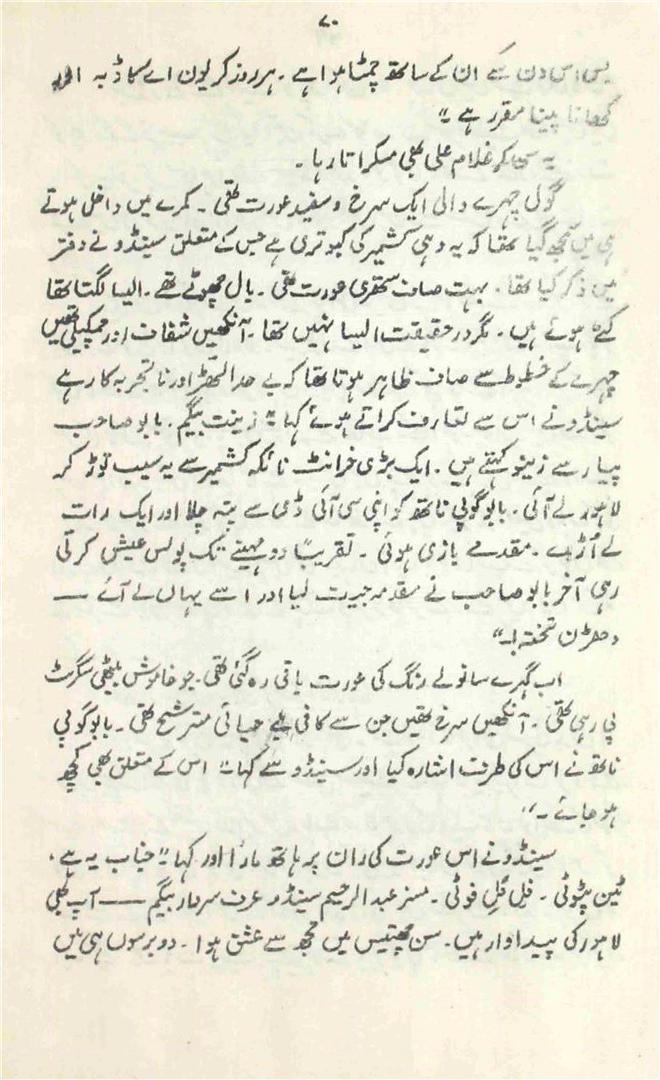 ۷۰
بس اس دن سے ان کے ساتھ چمٹا ہوا ہے ۔ ہر روز کریون اے کا ڈبہ اور
کھانا پینا مقرر ہے ۔"
یہ سن کر غلام علی بھی مسکراتا رہا ۔
گول چہرے والی ایک سرخ و سفید عورت تھی ۔ کمرے میں داخل ہوتے
ہی میں سمجھ گیا تھا کہ یہ وہی کشمیر کی کبوتری ہے جس کے متعلق سینڈو نے دفتر
میں ذکر کیا تھا ۔ بہت صاف ستھری عورت تھی ۔ بال چھوٹے تھے ۔ ایسا لگتا تھا
کٹے ہوئے ہیں ۔ مگر در حقیقت ایسا نہیں تھا ۔ آنکھیں شفاف اور چمکیلی تھیں
چہرے کے خطوط سے صاف ظاہر ہوتا تھا کہ بے حد الھڑ اور ناتجربہ کار ہے
سینڈو نے اس سے تعارف کراتے ہوئے کہا " زینت بیگم ۔ بابو صاحب
پیار سے زینو کہتے ہیں ۔ ایک بڑی خرانٹ نائکہ کشمیر سے یہ سیب توڑ کر
لاہور لے آئی ۔ بابو گوپی ناتھ کو اپنی سی آئی ڈی سے پتہ چلا اور ایک رات
لے اُڑے ۔ مقدمے بازی ہوئی ۔ تقریباً دو مہینے تک پولس عیش کرتی
رہی آخر بابو صاحب نے مقدمہ جیت لیا اور اسے یہاں لے آئے —
دھڑن تختہ !۔"
اب گہرے سانولے رنگ کی عورت باقی رہ گئی تھی ۔ جو خاموش بیٹھی سگرٹ
پی رہی تھی ۔ آنکھیں سرخ تھیں جن سے کافی بے حیائی مترشح تھی ۔ بابو گوپی
ناتھ نے اس کی طرف اشارہ کیا اور سینڈو سے کہا " اس کے متعلق بھی کچھ
ہو جائے ۔"
سینڈو نے اس عورت کی ران پر ہاتھ مارا اور کہا " جناب یہ ہے ،
ٹین پٹوٹی ۔ فل فل فوٹی ۔ مسز عبد الرحیم سینڈو عرف سردار بیگم — آپ بھی
لاہور کی پیداوار ہیں ۔ سن چھتیس میں مجھ سے عشق ہوا ۔ دو برسوں ہی میں